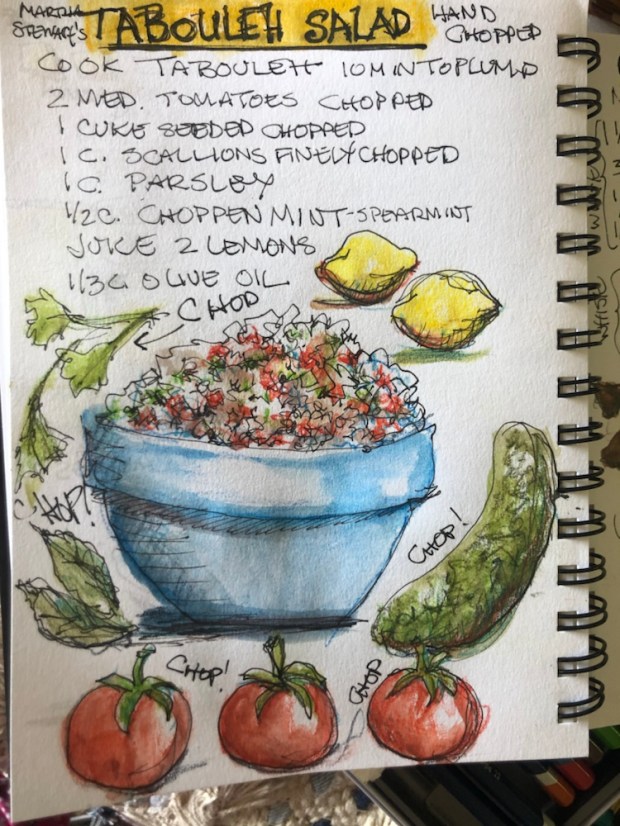 MARTHA STEWART'S TABOULEH SALAD HAND CHOPPED
COOK TABOULEH 10 MIN TO PLUMP
2 MED. TOMATOES CHOPPED
1 CUKE SEEDED CHOPPED
1 C. SCALLIONS FINELY CHOPPED
1 C. PARSLEY
1/2 C. CHOPPEN MINT-SPEARMINT
JUICE 2 LEMONS
1/3 C OLIVE OIL
CHOP
CHOP!
CHOP!
CHOP!
CHOP
WHISK